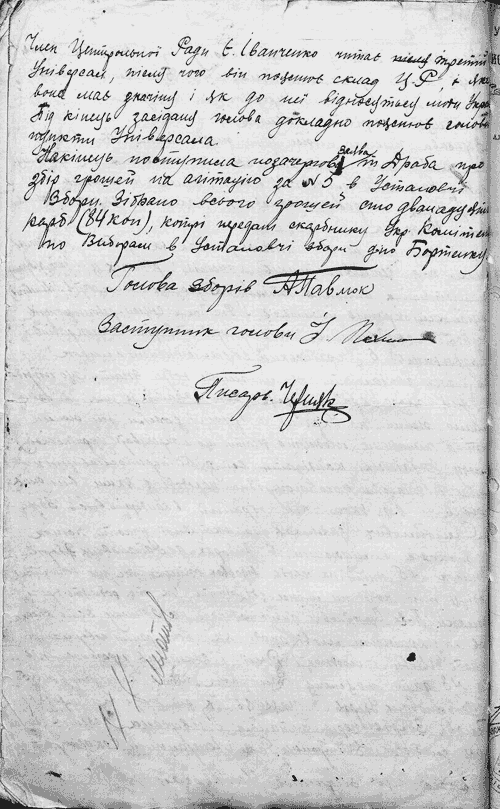 Член Центральної Ради Є. Іванченко читає третій
Універсал, після чого він пояснює склад Ц.Р., яке
вона має значіння і як до неї відносуться люди Укр
Під кінець засідання голова докладно пояснює головні
пункти Універсала
Накінець поступила позачергова заява т. Драба про
збір грошей на агітацію за № 5 в Установчі
Збори. Зібрано всього грошей сто двападцять
карб. (84 коп), котрі передані скарбнику Укр. Комітету
по Виборам в Установчі збори д-ю Бортенку
Голова зборів А Павлюк
Заступник голови
Писарь